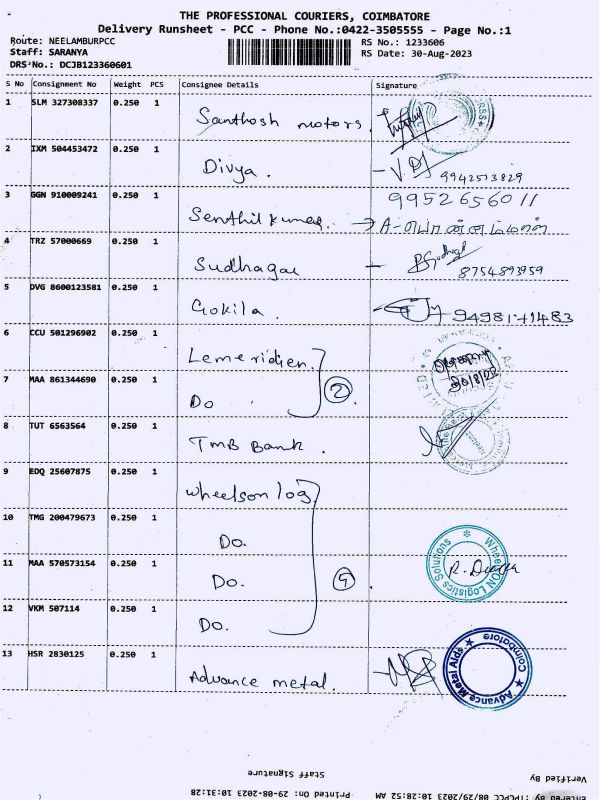 THE PROFESSIONAL COURIERS, COIMBATORE
Delivery Runsheet - PCC - Phone No.:0422-3505555 - Page No.:1
Route: NEELAMBURPCC RS No.: 1233606
Staff: SARANYA RS Date: 30-Aug-2023
DRS No.: DCJB123360601
S No Consignment No Weight PCS Consignee Details Signature
1 SLM 327308337 0.250 1 Santhosh motors.
2 IXM 504453472 0.250 1 Divya. 9942513829
3 GGN 910009241 0.250 1 9952656011
Senthil kumar.
4 TRZ 57000669 0.250 1 Sudhagar 8754893959
5 DVG 8600123581 0.250 1 Gokila.
6 CCU 501296902 0.250 1 Lemeridien.
7 MAA 861344690 0.250 1 Do . 2 30/8/23
8 TUT 6563564 0.250 1 TMB Bank .
9 EDQ 25607875 0.250 1 wheelson log.
10 TMG 200479673 0.250 1 Do.
11 MAA 570573154 0.250 1 Do.
WheelsON Logistics Solutions
12 VKM 507114 0.250 1 Do.
13 HSR 2830125 0.250 1 Advance metal.
Advance Metal Alps Coimbatore
Staff Signature Verified By
Printed On: 29-08-2023 10:31:28 Entered By :TPCPCC 08/29/23 10:28:52 AM